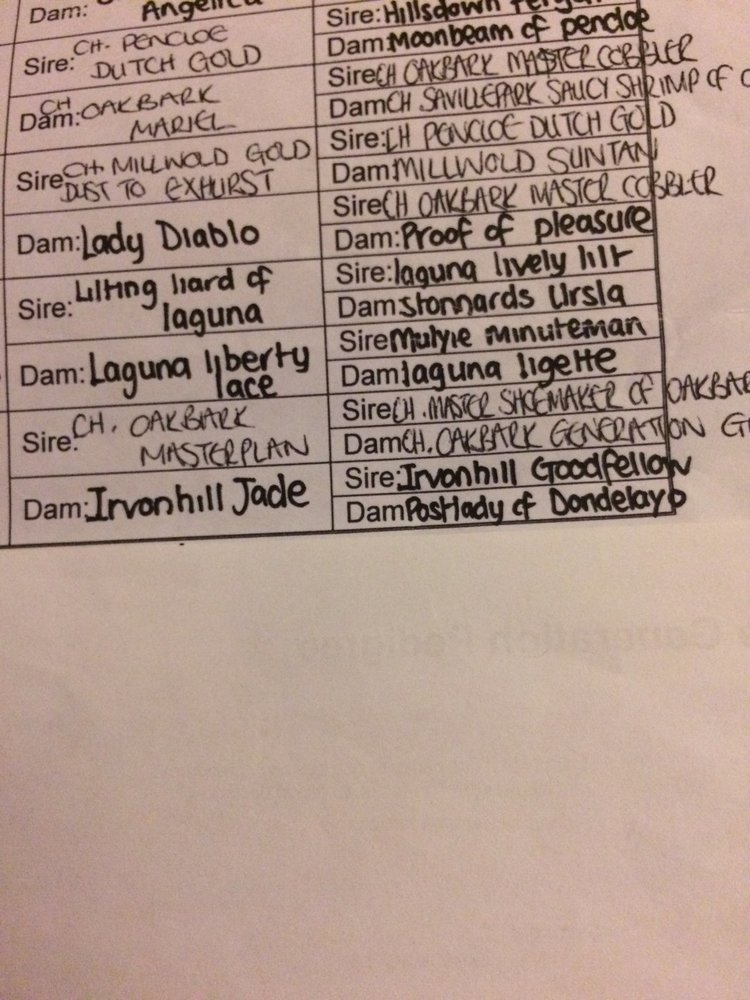 Dam: Angelica
Sire: Hillsdown
Dam: Moonbeam of pencloe
Sire: CH. PENCLOE
DUTCH GOLD
Sire CH OAKBARK MASTER COBBLER
Dam CH SAVILLEPARK SAUCY SHRIMP OF
Dam: CH OAKBARK
MARIEL
Sire: CH PENCLOE DUTCH GOLD
Dam: MILLWOLD SUNTAN
Sire CH MILLWOLD GOLD
DUST TO EXHURST
Sire CH OAKBARK MASTER COBBLER
Dam: Proof of pleasure
Dam: Lady Diablo
Sire: laguna lively lilt
Dam: stonnards Ursla
Sire: Lilting liard of
laguna
Sire Mulyie minuteman
Dam laguna ligette
Dam: Laguna liberty
lace
Sire CH. MASTER SHOEMAKER OF OAKBAR
Dam CH. OAKBARK GENERATION G
Sire: CH. OAKBARK
MASTERPLAN
Sire: Irvonhill Goodfellow
Dam Postlady of Dondelayo
Dam: Irvonhill Jade
Generation Pedigree